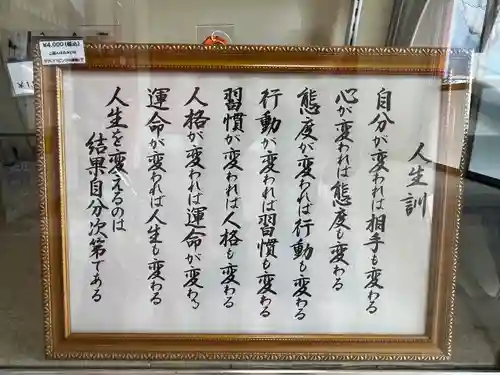 人生訓
自分が変われば相手も変わる
心が変われば態度も変わる
態度が変われば行動も変わる
行動が変われば習慣も変わる
習慣が変われば人格も変わる
人格が変われば運命が変わる
運命が変われば人生も変わる
人生を変えるのは
結果自分次第である
¥4,000(税込)